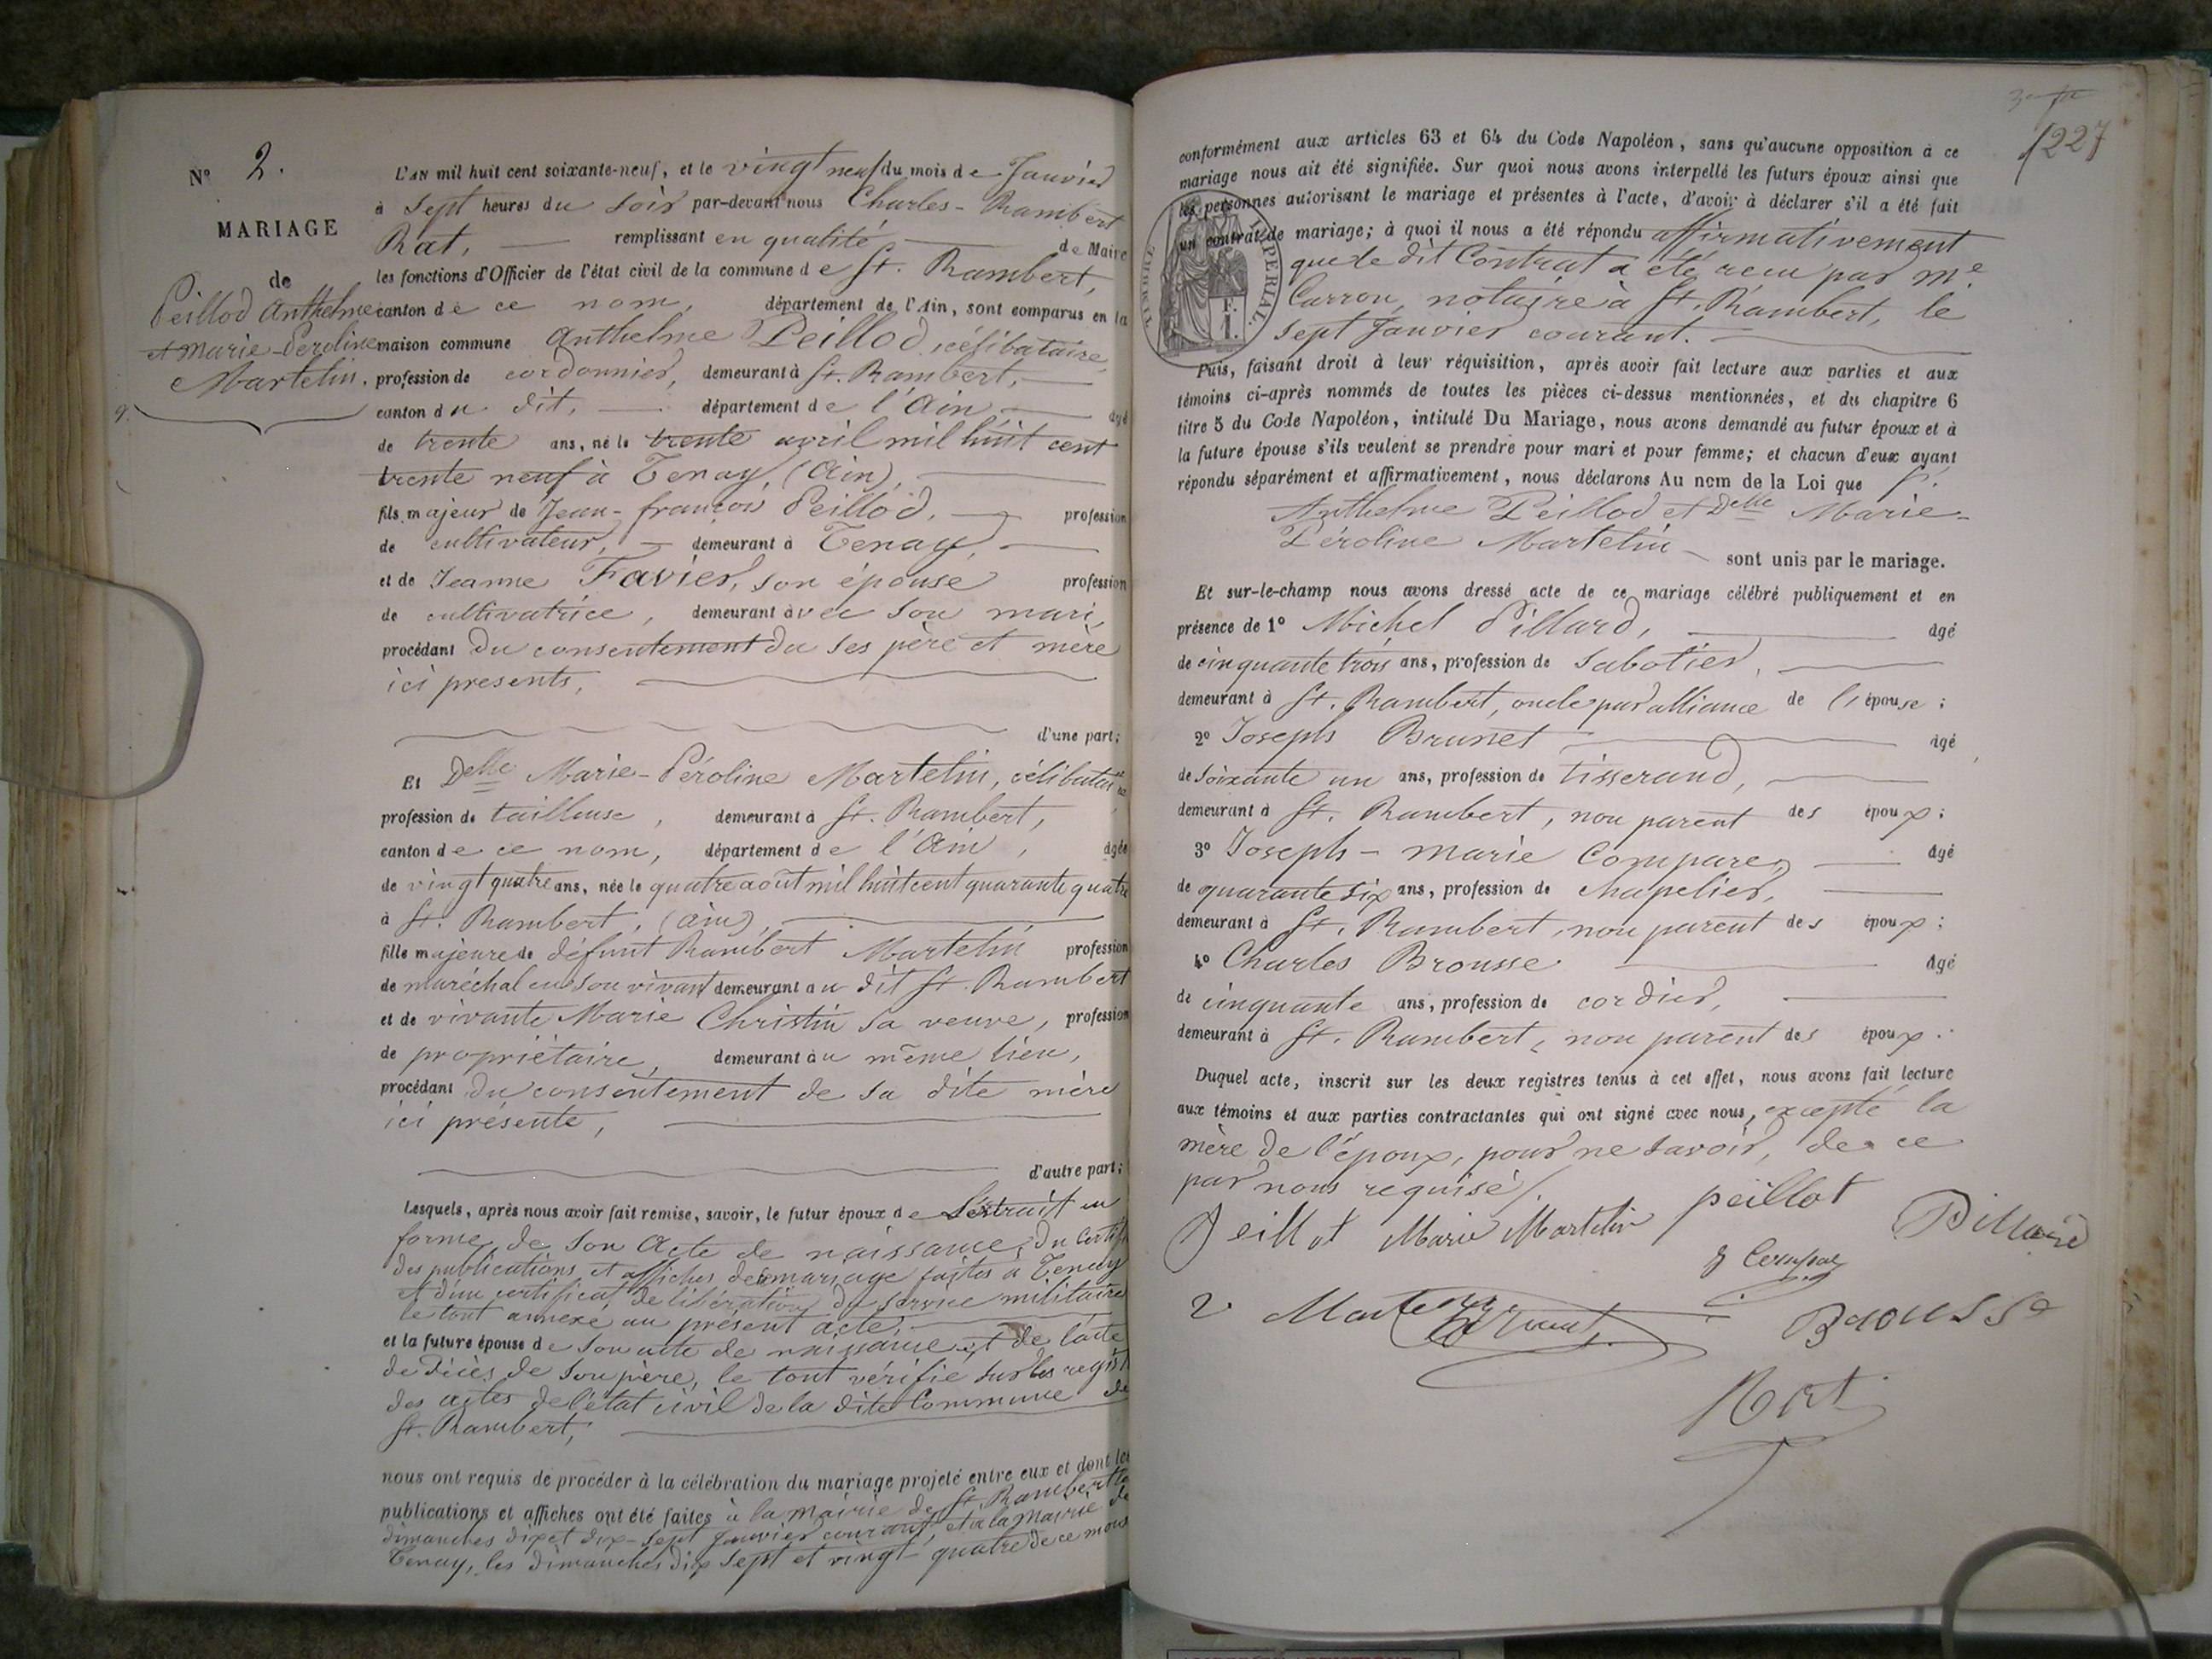 N° 2.
MARIAGE
de
Peillod Anthelme
et Marie-Peroline
Martelin.
L'AN mil huit cent soixante-neuf, et le vingt neuf du mois de Janvier
à Sept heures du soir par-devant nous Charles-Rambert
Rat, remplissant en qualité de Maire
les fonctions d'Officier de l'état civil de la commune de St. Rambert,
canton de ce nom, département de l'Ain, sont comparus en la
maison commune Anthelme Peillod, célibataire
profession de cordonnier, demeurant à St. Rambert,
canton du dit, département de l'Ain, âgé
de trente ans, né le trente avril mil huit cent
trente neuf à Tenay, (Ain),
fils majeur de Jean-françois Peillod, profession
de cultivateur, demeurant à Tenay,
et de Jeanne Favier, son épouse profession
de cultivatrice, demeurant avec son mari,
procédant du consentement du ses père et mère
ici presents,
d'une part;
Et Delle Marie-Péroline Martelin, célibataire
profession de tailleuse, demeurant à St. Rambert,
canton de ce nom, département de l'Ain, âgée
de vingt quatre ans, née le quatre août mil huit cent quarante quatre
à St. Rambert, (ain),
fille majeure de défunt Rambert Martelin profession
de maréchal en son vivant demeurant au dit St. Rambert
et de vivante Marie Christin sa veuve, profession
de propriétaire, demeurant au même lieu,
procédant du consentement de sa dite mère
ici présente,
d'autre part;
Lesquels, après nous avoir fait remise, savoir, le futur époux de L'extrait en
forme de son Acte de naissance, du certif.
des publications et affiches de mariage faites à Tenay
et d'un certificat de libération du service militaire
le tout annexé au présent acte,
et la future épouse de son acte de naissance et de l'acte
de décès de son père, le tout vérifié sur les regist
des actes de l'état civil de la dite Commune de
St. Rambert,
nous ont requis de procéder à la célébration du mariage projeté entre eux et dont les
publications et affiches ont été faites à la mairie de St. Rambert les
dimanches dix et dix-sept Janvier courant, et à la Mairie de
Tenay, les dimanches dix sept et vingt-quatre de ce mois
1227
conformément aux articles 63 et 64 du Code Napoléon, sans qu'aucune opposition à ce
mariage nous ait été signifiée. Sur quoi nous avons interpellé les futurs époux ainsi que
les personnes autorisant le mariage et présentes à l'acte, d'avoir à déclarer s'il a été fait
un contrat de mariage; à quoi il nous a été répondu affirmativement
que le dit Contrat a été reçu par Me
Carron, notaire à St. Rambert, le
sept Janvier courant.
TIMBRE IMPÉRIAL.
F.
1.
Puis, faisant droit à leur réquisition, après avoir fait lecture aux parties et aux
témoins ci-après nommés de toutes les pièces ci-dessus mentionnées, et du chapitre 6
titre 5 du Code Napoléon, intitulé Du Mariage, nous avons demandé au futur époux et à
la future épouse s'ils veulent se prendre pour mari et pour femme; et chacun d'eux ayant
répondu séparément et affirmativement, nous déclarons Au nom de la Loi que S.
Anthelme Peillod et Delle Marie-
Péroline Martelin sont unis par le mariage.
Et sur-le-champ nous avons dressé acte de ce mariage célébré publiquement et en
présence de 1° Michel Pillard, âgé
de cinquante trois ans, profession de sabotier,
demeurant à St. Rambert, oncle par alliance de l'épouse;
2° Joseph Brunet âgé
de soixante un ans, profession de tisserand,
demeurant à St. Rambert, non parent des époux;
3° Joseph-marie Comparey âgé
de quarante six ans, profession de chapelier,
demeurant à St. Rambert, non parent des époux;
4° Charles Brousse âgé
de cinquante ans, profession de cordier,
demeurant à St. Rambert, non parent des époux.
Duquel acte, inscrit sur les deux registres tenus à cet effet, nous avons fait lecture
aux témoins et aux parties contractantes qui ont signé avec nous, excepté la
mère de l'époux, pour ne savoir, de ce
par nous requise.
Peillot Marie Martelin peillot Pillard
Brousse
Rat